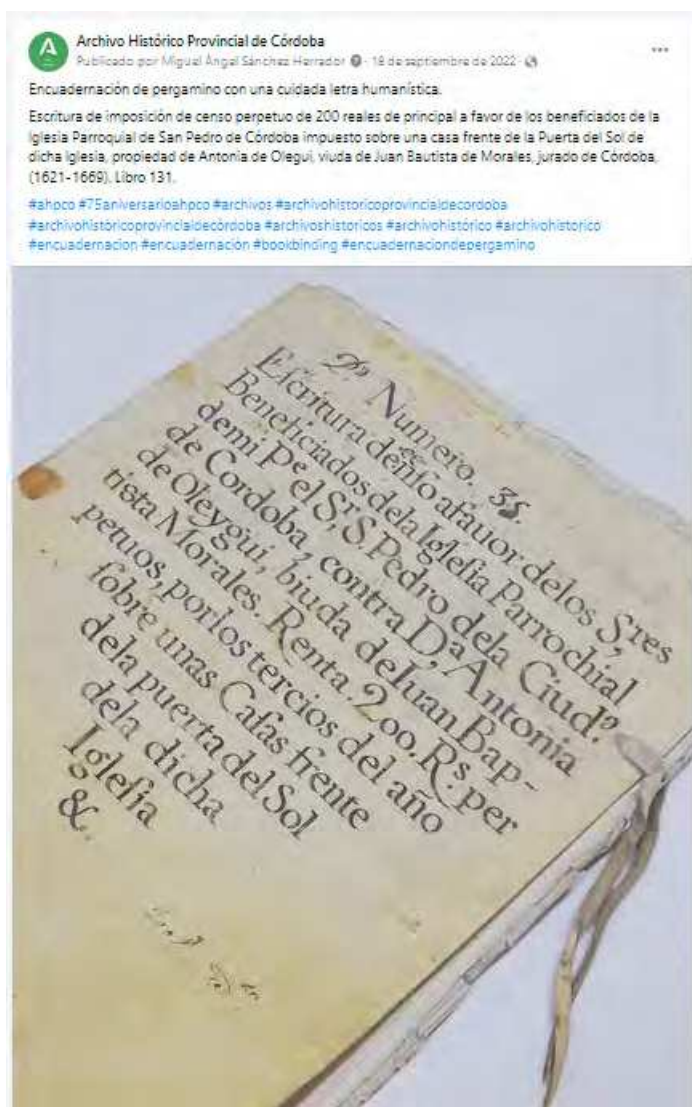 Archivo Histórico Provincial de Córdoba
Publicado por Miguel Ángel Sánchez Herrador · 18 de septiembre de 2022 ·
Encuadernación de pergamino con una cuidada letra humanística.
Escritura de imposición de censo perpetuo de 200 reales de principal a favor de los beneficiados de la
Iglesia Parroquial de San Pedro de Córdoba impuesto sobre una casa frente de la Puerta del Sol de
dicha Iglesia, propiedad de Antonia de Olegui, viuda de Juan Bautista de Morales, jurado de Córdoba,
(1621-1669). Libro 131.
#ahpco #75aniversarioahpco #archivos #archivohistoricoprovincialdecordoba
#archivohistóricoprovincialdecórdoba #archivoshistoricos #archivohistórico #archivohistorico
#encuadernacion #encuadernación #bookbinding #encuadernaciondepergamino
Numero. 35.
Eſcritura de afauor delos S,res
Beneficiados dela Igleſia Parrochial
demi Pe el Sr, S. Pedro dela Ciud.
de Cordoba, contra Dª, Antonia
de Oleygui, biuda de Iuan Bap-
tista Morales. Renta. 200. Rs. per
petuos, porlos tercios del año
ſobre unas Caſas frente
dela puerta del Sol
dela dicha
Igleſia
&.